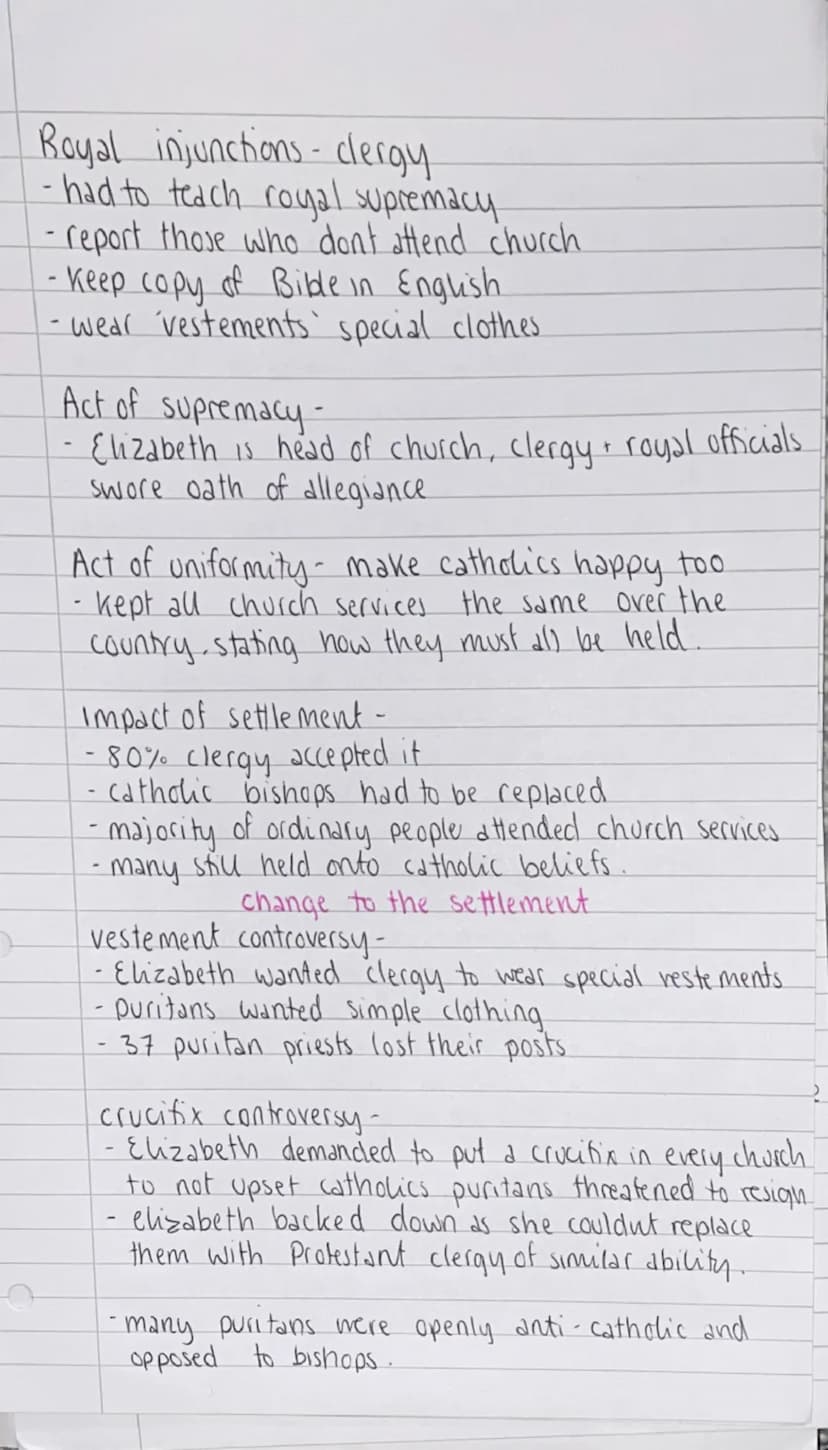 Royal injunctions - clergy
- had to teach royal supremacy
- report those who dont attend church
- Keep copy of Bible in English
- wear 'vestements' special clothes
Act of supremacy -
- Elizabeth is head of church, clergy + royal officials
swore oath of allegiance
Act of uniformity - make catholics happy too
- kept all church services the same over the
country, stating how they must all be held.
Impact of settlement -
- 80% clergy accepted it
- catholic bishops had to be replaced
- majority of ordinary people attended church services
- many still held onto catholic beliefs.
change to the settlement
vestement controversy -
- Elizabeth wanted clergy to wear special vestements
- puritans wanted simple clothing
- 37 puritan priests lost their posts
crucifix controversy -
- Elizabeth demanded to put a crucifix in every church
to not upset catholics puritans threatened to resign
- elizabeth backed down as she couldnt replace
them with Protestant clergy of similar ability.
- many puritans were openly anti-catholic and
opposed to bishops.